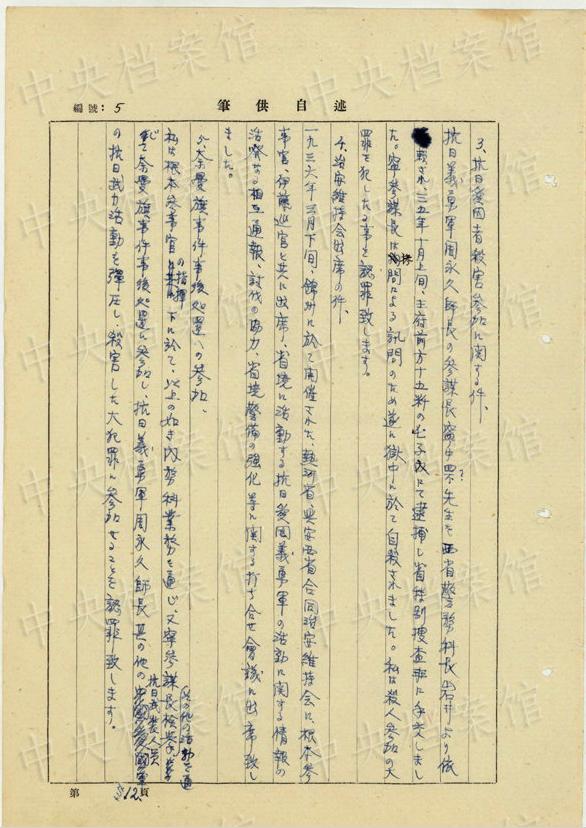 編號：5
筆供自述
3、抗日愛国者殺害参加に関する件、
抗日義勇軍周永久師長の参謀長甯中
先生を西省警務科長岩井より依
され、三五年十月上旬、王府前方十五粁の
にて逮捕し省特別捜査班に手交しまし
た。甯参謀長は拷問による訊問のため遂に獄中に於て自殺されました。私は殺人参加の大
罪を犯したる事を認罪致します。
4、治安維持会出席の件、
一九三六年三月下旬、錦州に於て開催された、熱河省、興安西省合同治安維持会に、根本参
事官、伊藤巡官と共に出席し、省境に活動する抗日愛国義勇軍の活動に関する情報の
治察なる相互通報、討伐の協力、省境警備の強化等に関する打ち合せ会議に出席致し
ました。
5、奈曼旗事件事後処置への参加、
私は根本参事官の指揮下に於て、以上の如き内勢科業務を通じ、又甯参謀長検挙
其の他の活動を通
じて奈曼旗事件事後処置に参加し抗日義勇軍周永久師長其の他の
抗日武装人員
の抗日武力活動を弾圧し、殺害した大犯罪に参加せることを認罪致します。
第 12 頁
中央档案馆